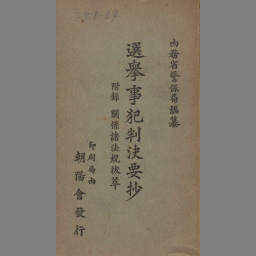 内務省警保局編纂
選擧事犯判決要抄
附錄 關係諸法規拔萃
印刷局內
朝陽會發行